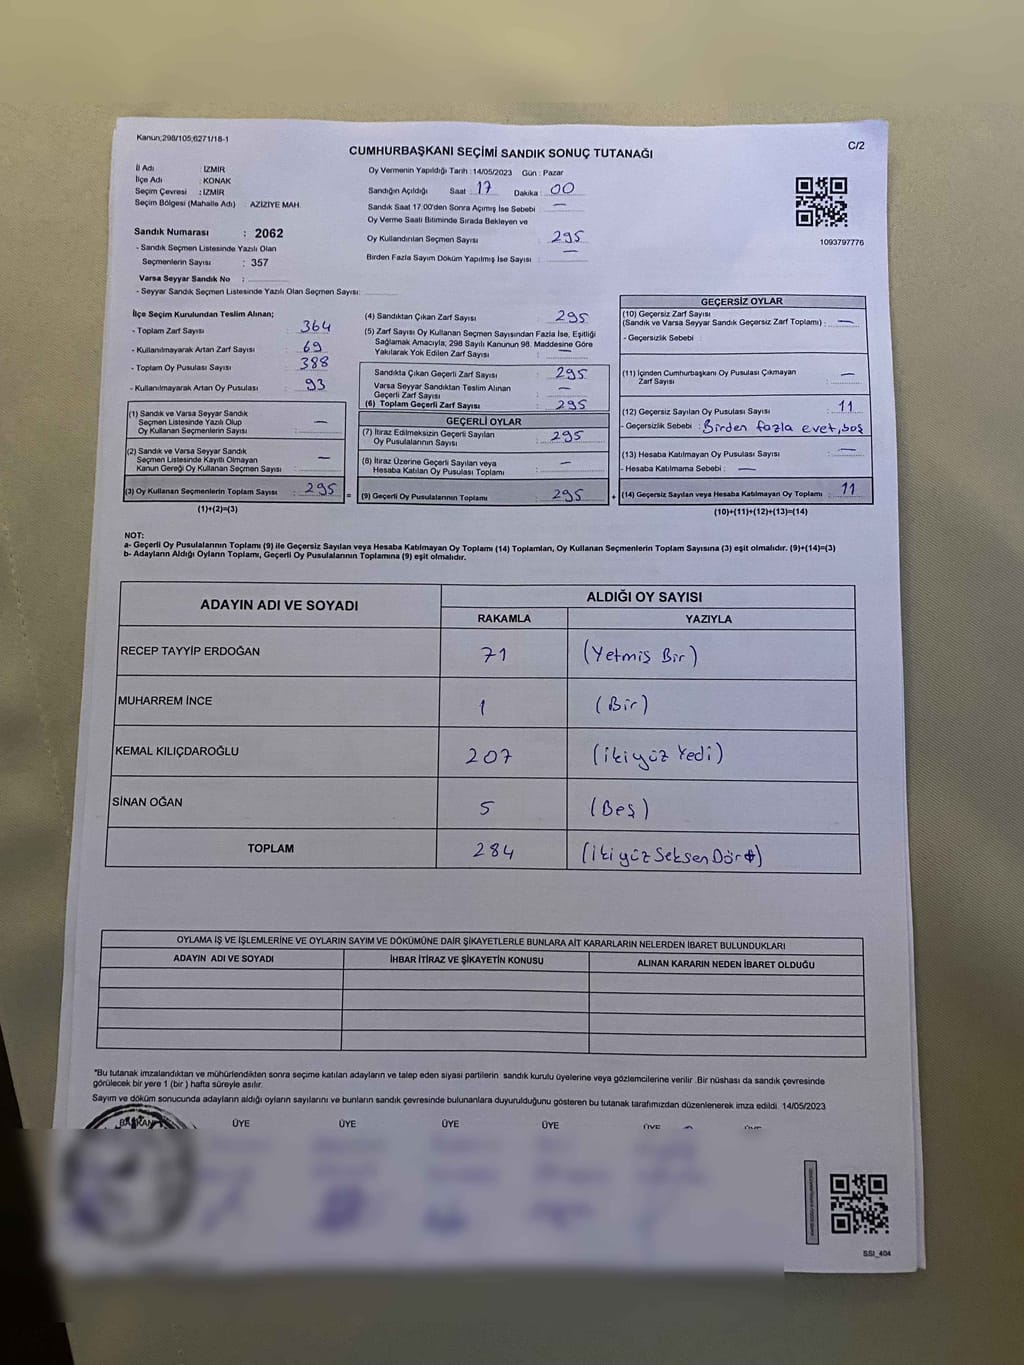 Kanun;298/105;6271/18-1
C/2
CUMHURBAŞKANI SEÇİMİ SANDIK SONUÇ TUTANAĞI
İl Adı : İZMİR
İlçe Adı : KONAK
Seçim Çevresi : İZMİR
Seçim Bölgesi (Mahalle Adı) : AZİZİYE MAH.
Sandık Numarası : 2062
- Sandık Seçmen Listesinde Yazılı Olan
Seçmenlerin Sayısı : 357
Varsa Seyyar Sandık No :
- Seyyar Sandık Seçmen Listesinde Yazılı Olan Seçmen Sayısı:
Oy Vermenin Yapıldığı Tarih : 14/05/2023 Gün : Pazar
Sandığın Açıldığı Saat 17 Dakika : 00
Sandık Saat 17:00'den Sonra Açımış İse Sebebi : —
Oy Verme Saati Bitiminde Sırada Bekleyen ve
Oy Kullandırılan Seçmen Sayısı : 295
Birden Fazla Sayım Döküm Yapılmış İse Sayısı : —
1093797776
İlçe Seçim Kurulundan Teslim Alınan;
- Toplam Zarf Sayısı : 364
- Kullanılmayarak Artan Zarf Sayısı : 69
- Toplam Oy Pusulası Sayısı : 388
- Kullanılmayarak Artan Oy Pusulası : 93
(1) Sandık ve Varsa Seyyar Sandık
Seçmen Listesinde Yazılı Olup
Oy Kullanan Seçmenlerin Sayısı : —
(2) Sandık ve Varsa Seyyar Sandık
Seçmen Listesinde Kayıtlı Olmayan
Kanun Gereği Oy Kullanan Seçmen Sayısı : —
(3) Oy Kullanan Seçmenlerin Toplam Sayısı : 295 =
(1)+(2)=(3)
(4) Sandıktan Çıkan Zarf Sayısı : 295
(5) Zarf Sayısı Oy Kullanan Seçmen Sayısından Fazla İse, Eşitliği
Sağlamak Amacıyla; 298 Sayılı Kanunun 98. Maddesine Göre
Yakılarak Yok Edilen Zarf Sayısı : —
Sandıkta Çıkan Geçerli Zarf Sayısı : 295
Varsa Seyyar Sandıktan Teslim Alınan
Geçerli Zarf Sayısı : —
(6) Toplam Geçerli Zarf Sayısı : 295
GEÇERLİ OYLAR
(7) İtiraz Edilmeksizin Geçerli Sayılan
Oy Pusulalarının Sayısı : 295
(8) İtiraz Üzerine Geçerli Sayılan veya
Hesaba Katılan Oy Pusulası Toplamı : —
(9) Geçerli Oy Pusulalarının Toplamı : 295 +
GEÇERSİZ OYLAR
(10) Geçersiz Zarf Sayısı
(Sandık ve Varsa Seyyar Sandık Geçersiz Zarf Toplamı) : —
- Geçersizlik Sebebi :
(11) İçinden Cumhurbaşkanı Oy Pusulası Çıkmayan
Zarf Sayısı : —
(12) Geçersiz Sayılan Oy Pusulası Sayısı : 11
- Geçersizlik Sebebi : Birden fazla evet, boş
(13) Hesaba Katılmayan Oy Pusulası Sayısı : —
- Hesaba Katılmama Sebebi : —
(14) Geçersiz Sayılan veya Hesaba Katılmayan Oy Toplamı : 11
(10)+(11)+(12)+(13)=(14)
NOT:
a- Geçerli Oy Pusulalarının Toplamı (9) ile Geçersiz Sayılan veya Hesaba Katılmayan Oy Toplamı (14) Toplamları, Oy Kullanan Seçmenlerin Toplam Sayısına (3) eşit olmalıdır. (9)+(14)=(3)
b- Adayların Aldığı Oyların Toplamı, Geçerli Oy Pusulalarının Toplamına (9) eşit olmalıdır.
ADAYIN ADI VE SOYADI ALDIĞI OY SAYISI
RAKAMLA YAZIYLA
RECEP TAYYİP ERDOĞAN 71 (Yetmiş Bir)
MUHARREM İNCE 1 (Bir)
KEMAL KILIÇDAROĞLU 207 (ikiyüz Yedi)
SİNAN OĞAN 5 (Beş)
TOPLAM 284 (ikiyüz Seksen Dört)
OYLAMA İŞ VE İŞLEMLERİNE VE OYLARIN SAYIM VE DÖKÜMÜNE DAİR ŞİKAYETLERLE BUNLARA AİT KARARLARIN NELERDEN İBARET BULUNDUKLARI
ADAYIN ADI VE SOYADI İHBAR İTİRAZ VE ŞİKAYETİN KONUSU ALINAN KARARIN NEDEN İBARET OLDUĞU
"Bu tutanak imzalandıktan ve mühürlendikten sonra seçime katılan adayların ve talep eden siyasi partilerin sandık kurulu üyelerine veya gözlemcilerine verilir .Bir nüshası da sandık çevresinde
görülecek bir yere 1 (bir ) hafta süreyle asılır.
Sayım ve döküm sonucunda adayların aldığı oyların sayılarını ve bunların sandık çevresinde bulunanlara duyurulduğunu gösteren bu tutanak tarafımızdan düzenlenerek imza edildi. 14/05/2023
BAŞKAN ÜYE ÜYE ÜYE ÜYE ÜYE ÜYE
SSI_404